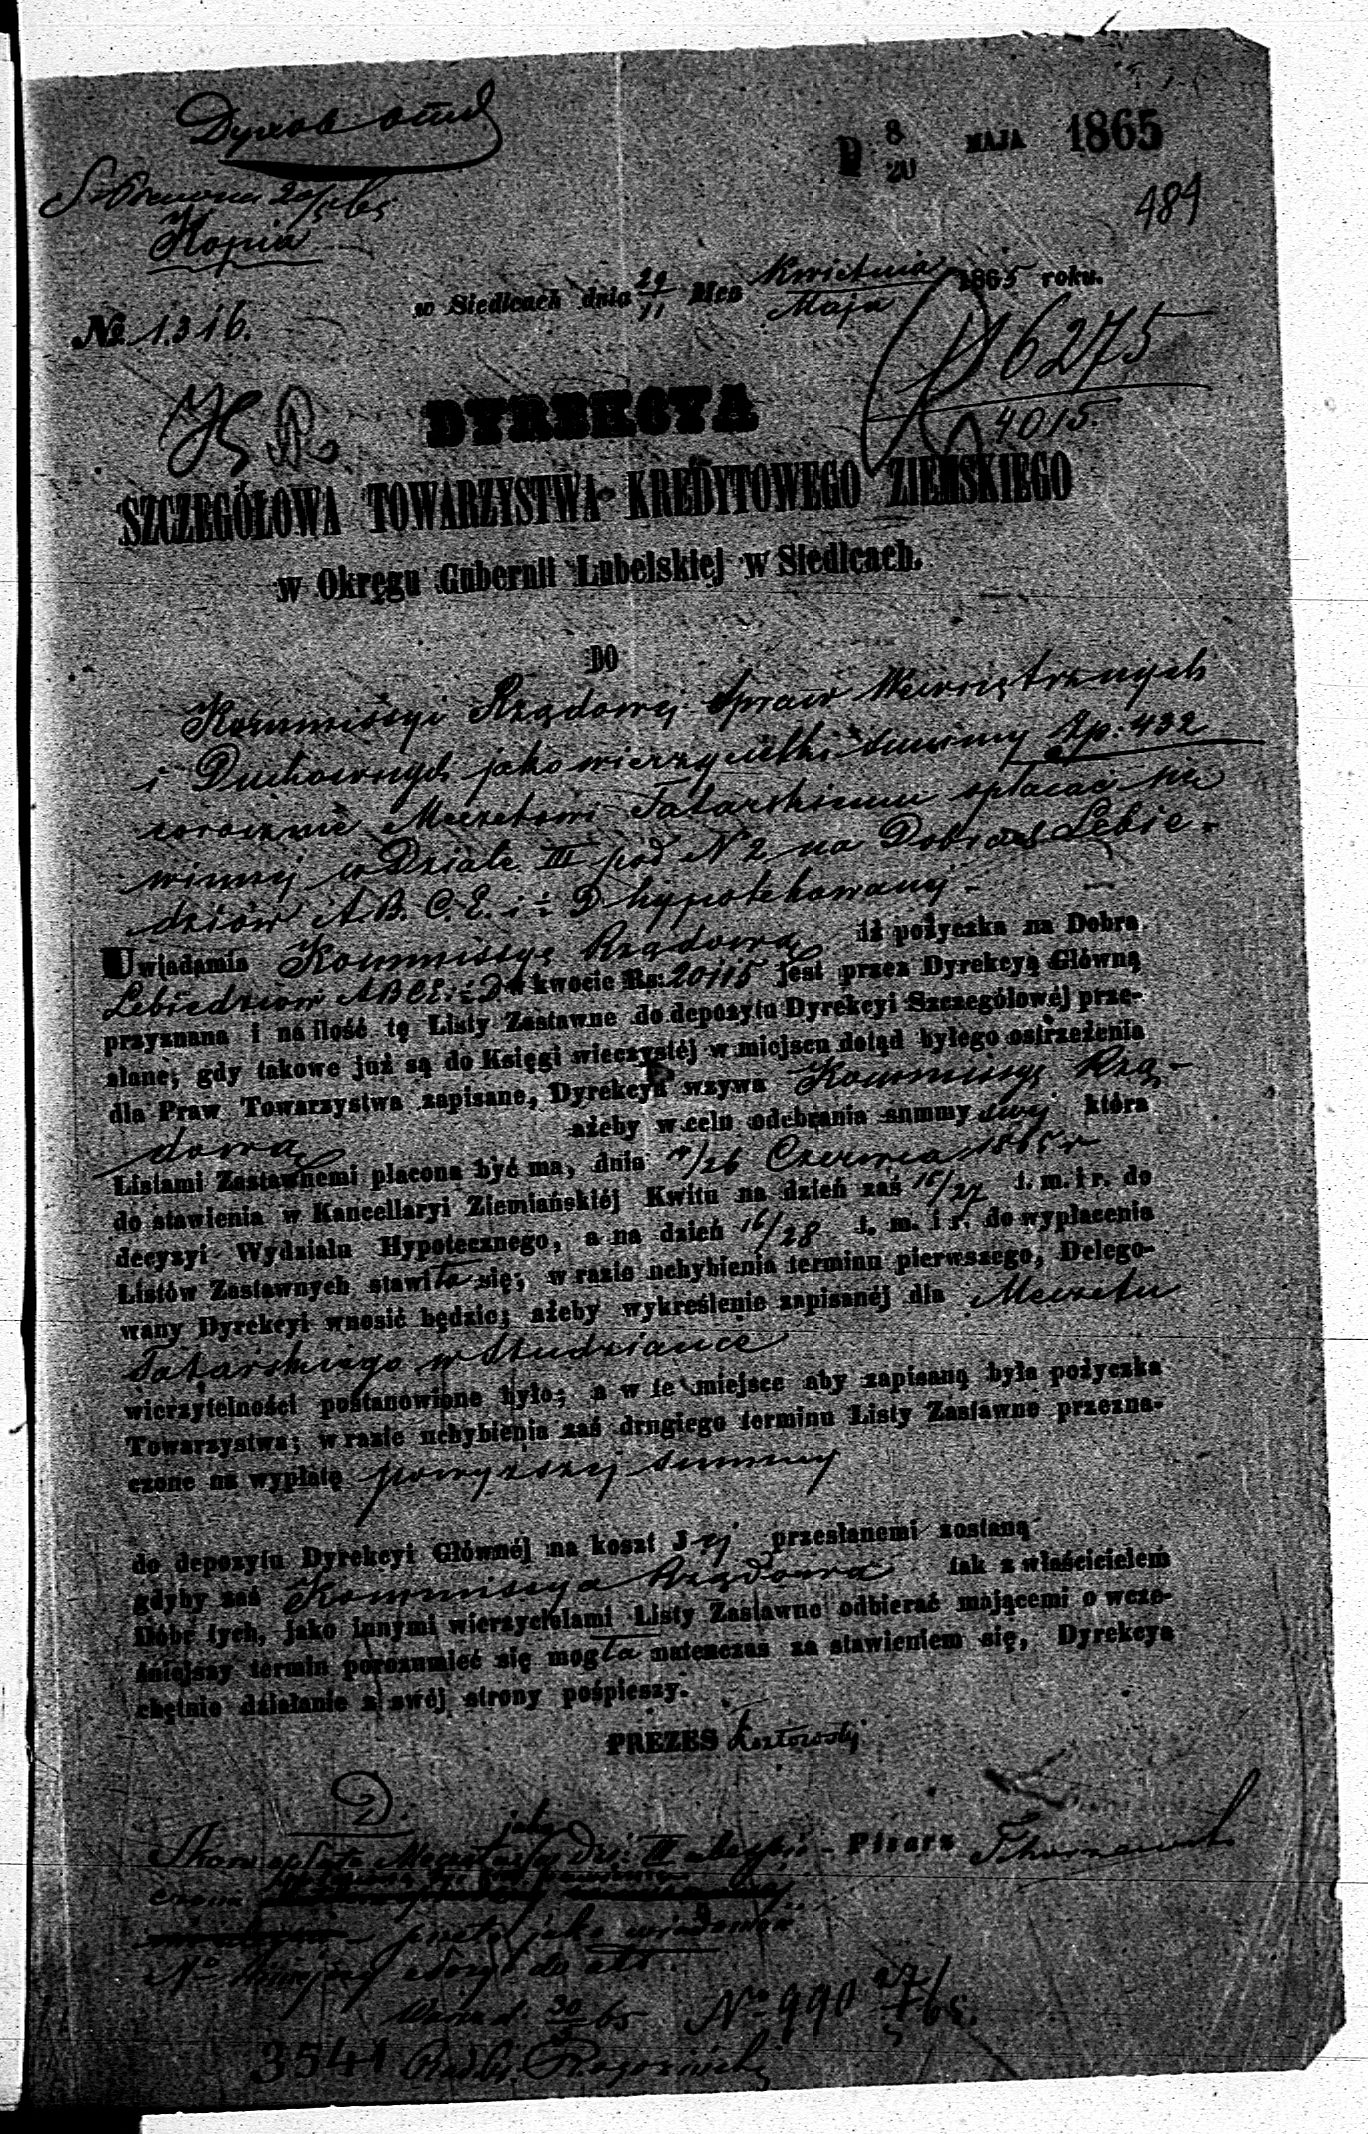 P 8/20 MAJA 1865
484
Kopia
w Siedlcach dnia 29/11 Mca Kwietnia/Maja 1865 roku.
№ 1316.
16275
4015.
DYREKCYA
SZCZEGÓŁOWA TOWARZYSTWA KREDYTOWEGO ZIEMSKIEGO
w Okręgu Gubernii Lubelskiej w Siedlcach.
DO
Kommissyi Rządowej Spraw Wewnętrznych
i Duchownych jako wierzycielki summy Zp. 432
corocznie Meczetowi Tatarskiemu spłacać się
winnej w Dziale III pod N 2 na Dobrach Lebie-
dziów A.B.C.E. i D hypotekowanej -
Uwiadamia Kommissyę Rządową iż pożyczka na Dobra
Lebiedziów ABCE. i D w kwocie Rs: 20115 jest przez Dyrekcyą Główną
przyznana i na ilość tę Listy Zastawne do depozytu Dyrekcyi Szczegółowéj prze-
słane; gdy takowe już są do Księgi wieczystéj w miejscu dotąd byłego ostrzeżenia
dla Praw Towarzystwa zapisane, Dyrekcya wzywa Kommissyę Rzą-
dową ażeby w celu odebrania summy swej która
Listami Zastawnemi płaconą być ma, dnia /26 Czerwca 1865 r
do stawienia w Kancellaryi Ziemiańskiéj Kwitu na dzień zaś 15/27 t. m. i r. do
decyzyi Wydziału Hypotecznego, a na dzień 16/28 t. m. i r. do wypłacenia
Listów Zastawnych stawiła się; w razie uchybienia terminu pierwszego, Delego-
wany Dyrekcyi wnosić będzie; ażeby wykreślenie zapisanéj dla Meczetu
Tatarskiego w Studziance
wierzytelności postanowione było; a w te miejsce aby zapisaną była pożyczka
Towarzystwa; w razie uchybienia zaś drugiego terminu Listy Zastawne przezna-
czone na wypłatę powyższej summy
do depozytu Dyrekcyi Głównéj na koszt Jej przesłanemi zostaną
gdyby zaś Kommissya Rządowa tak z właścicielem
Dóbr tych, jako innymi wierzycielami Listy Zastawne odbierać mającemi o wcze-
śniejszy termin porozumieć się mogła natenczas za stawieniem się, Dyrekcya
chętnie działanie z swéj strony pośpieszy.
PREZES
D.
Pisarz
przeto jako wiadomość
do akt.
30/5 65 № 990 27/5 65.
3541